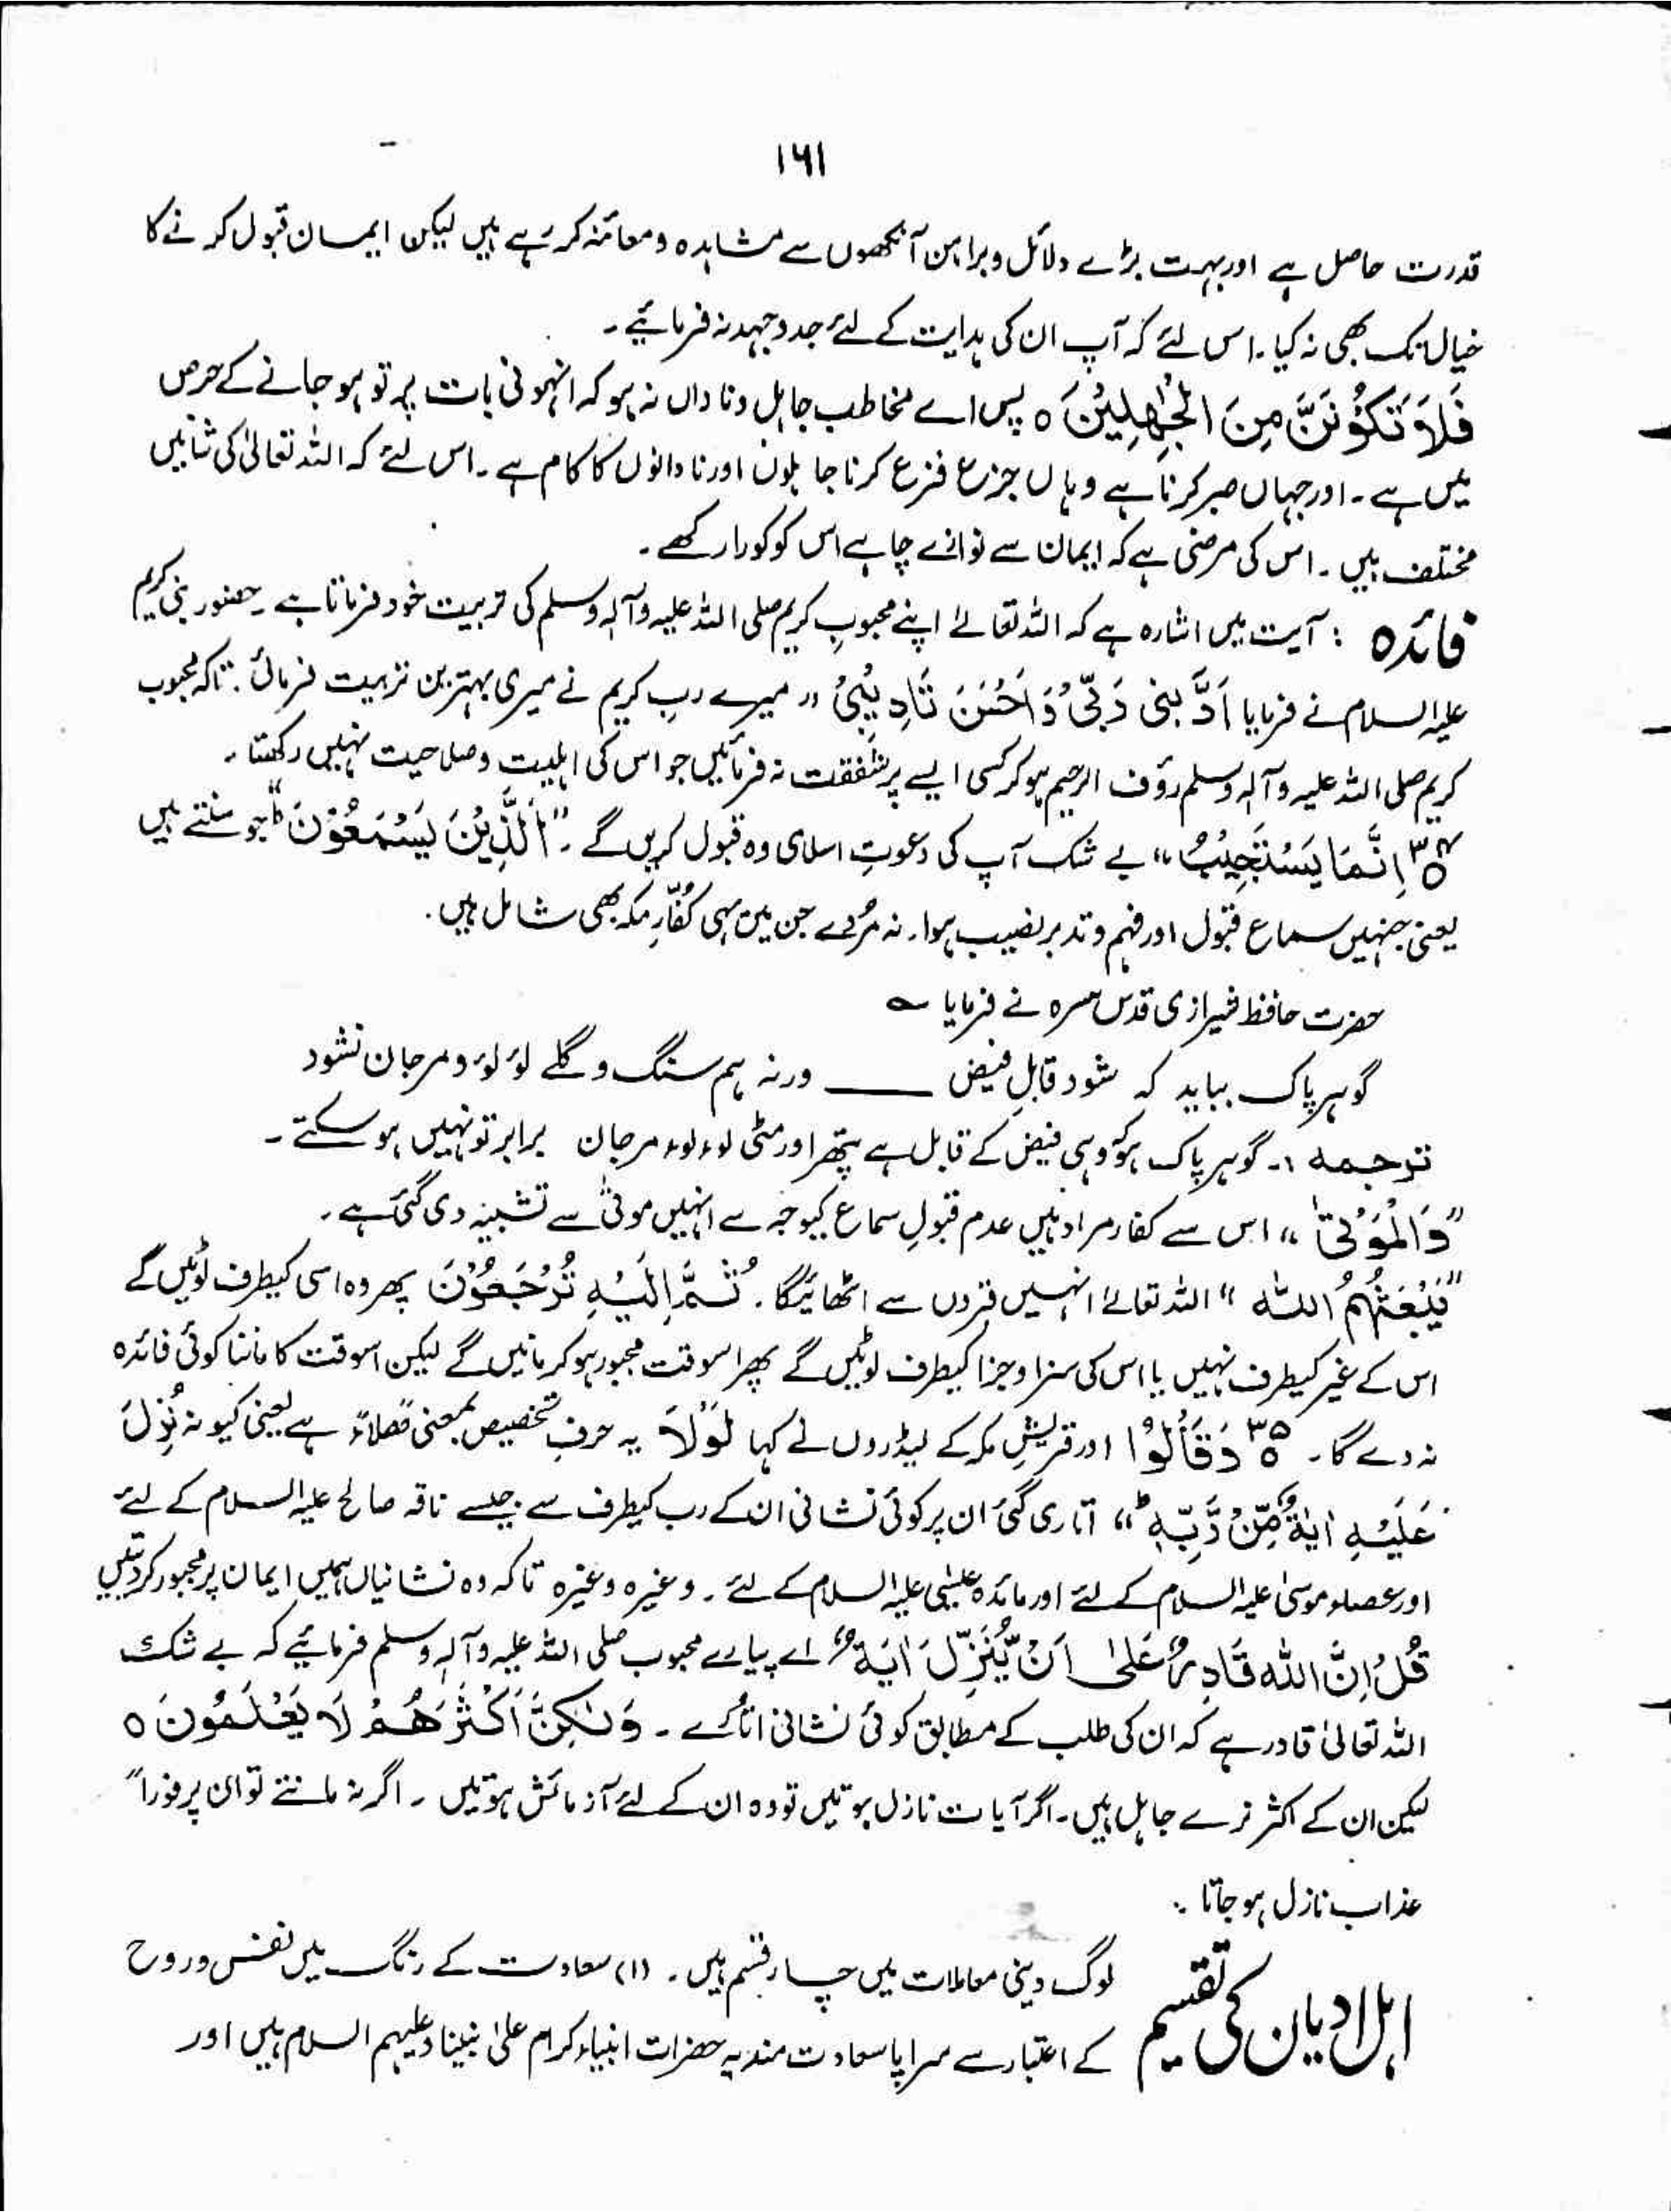 ۱۶۱
قدرت حاصل ہے اور بہت بڑے دلائل و براہین آنکھوں سے مشاہدہ و معائنہ کر رہے ہیں لیکن ایمان قبول کرنے کا
خیال تک بھی نہ کیا۔ اس لئے کہ آپ ان کی ہدایت کے لئے جدوجہد نہ فرمائیے۔
فَلَا تَكُوْنَنَّ مِنَ الْجٰهِلِيْنَ ٥ پس اے مخاطب جاہل و ناداں نہ ہو کہ انہونی بات پر تو ہو جانے کے حرص
میں ہے۔ اور جہاں صبر کرنا ہے وہاں جزع فزع کرنا جاہلوں اور نادانوں کا کام ہے۔ اس لئے کہ اللہ تعالیٰ کی شانیں
مختلف ہیں۔ اس کی مرضی ہے کہ ایمان سے نوازے چاہے اس کو کورا رکھے۔
فائدہ : آیت میں اشارہ ہے کہ اللہ تعالےٰ اپنے محبوبِ کریم صلی اللہ علیہ وآلہٖ وسلم کی تربیت خود فرماتا ہے۔ حضور نبی کریم
علیہ السلام نے فرمایا اَدَّبَنِی رَبِّیْ وَاَحْسَنَ تَادِیْبِیْ " میرے ربِ کریم نے میری بہترین تربیت فرمائی۔ تاکہ محبوب
کریم صلی اللہ علیہ وآلہٖ وسلم رؤف الرحیم ہو کر کسی ایسے پر شفقت نہ فرمائیں جو اس کی اہلیت و صلاحیت نہیں رکھتا۔
۳۶ اِنَّمَا يَسْتَجِيْبُ" بے شک آپ کی دعوتِ اسلامی وہ قبول کریں گے۔ "الَّذِيْنَ يَسْمَعُوْنَ ؕ" جو سنتے ہیں
یعنی جنہیں سماع قبول اور فہم و تدبر نصیب ہوا۔ نہ مُردے جن میں یہی کُفّارِ مکہ بھی شامل ہیں۔
حضرت حافظ شیرازی قدس سرہ نے فرمایا ؎
گوہر پاک بباید کہ شود قابلِ فیض ــــــ ورنہ ہم سنگ و گلے لؤلؤ و مرجان نشود
ترجمہ ۱۔ گوہر پاک ہو کہ وہی فیض کے قابل ہے پتھر اور مٹی لوء لوء مرجان برابر تو نہیں ہو سکتے۔
"وَالْمَوْتٰى" اس سے کفار مراد ہیں عدم قبولِ سماع کیوجہ سے انہیں موتیٰ سے تشبیہ دی گئی ہے۔
"يَبْعَثُهُمُ اللّٰهُ" اللہ تعالےٰ انہیں قبروں سے اٹھائیگا۔ ثُمَّ اِلَيْهِ تُرْجَعُوْنَ پھر وہ اسی کیطرف لوٹیں گے
اس کے غیر کیطرف نہیں یا اس کی سزا و جزا کیطرف لوٹیں گے پھر اسوقت مجبور ہو کر مانیں گے لیکن اسوقت کا ماننا کوئی فائدہ
نہ دے گا۔ ۳۵ وَقَالُوْا اور قریشِ مکہ کے لیڈروں نے کہا لَوْلَا یہ حرفِ تخصیص بمعنی ھَلَّا ہے یعنی کیوں نہ نُزِّلَ
عَلَيْهِ اٰيَةٌ مِّنْ رَّبِّهٖ ؕ" اتاری گئی ان پر کوئی نشانی ان کے رب کیطرف سے جیسے ناقہ صالح علیہ السلام کے لئے
اور عصاء موسیٰ علیہ السلام کے لئے اور مائدہ عیسیٰ علیہ السلام کے لئے۔ وغیرہ وغیرہ تاکہ وہ نشانیاں ہمیں ایمان پر مجبور کر دیتیں
قُلْ اِنَّ اللّٰهَ قَادِرٌ عَلٰى اَنْ يُّنَزِّلَ اٰيَةً اے پیارے محبوب صلی اللہ علیہ وآلہٖ وسلم فرمائیے کہ بے شک
اللہ تعالیٰ قادر ہے کہ ان کی طلب کے مطابق کوئی نشانی اتارے۔ وَلٰكِنَّ اَكْثَرَهُمْ لَا يَعْلَمُوْنَ ٥
لیکن ان کے اکثر نرے جاہل ہیں۔ اگر آیات نازل ہوتیں تو وہ ان کے لئے آزمائش ہوتیں۔ اگر نہ مانتے تو ان پر فوراً
عذاب نازل ہو جاتا۔
اہل ادیان کی تقسیم لوگ دینی معاملات میں چار قسم ہیں۔ (۱) سعادت کے رنگ میں نفس و روح
کے اعتبار سے سراپا سعادت مند یہ حضرات انبیاء کرام علیٰ نبینا وعلیہم السلام ہیں اور